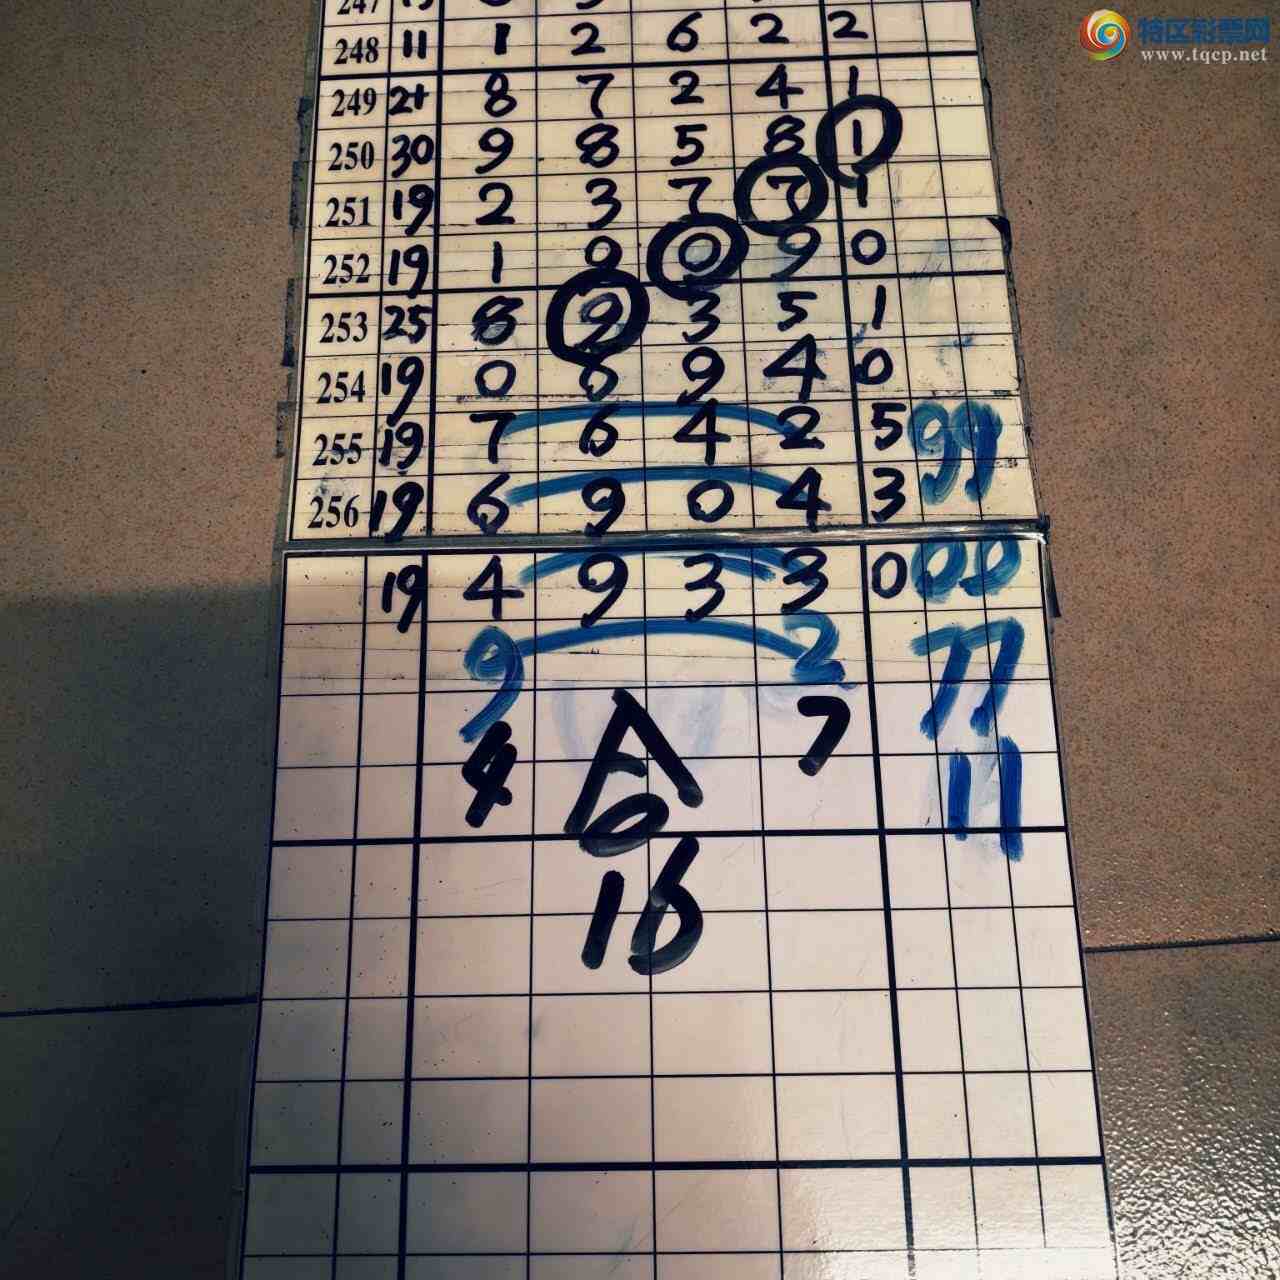 特区彩票网
www.tqcp.net
247
248 11 1 2 6 2 2
249 21 8 7 2 4 1
250 30 9 8 5 8 1
251 19 2 3 7 7 1
252 19 1 0 0 9 0
253 25 8 9 3 5 1
254 19 0 6 9 4 0
255 19 7 6 4 2 5 99
256 19 6 9 0 4 3
19 4 9 3 3 0 00
9 2 77
7
11
16